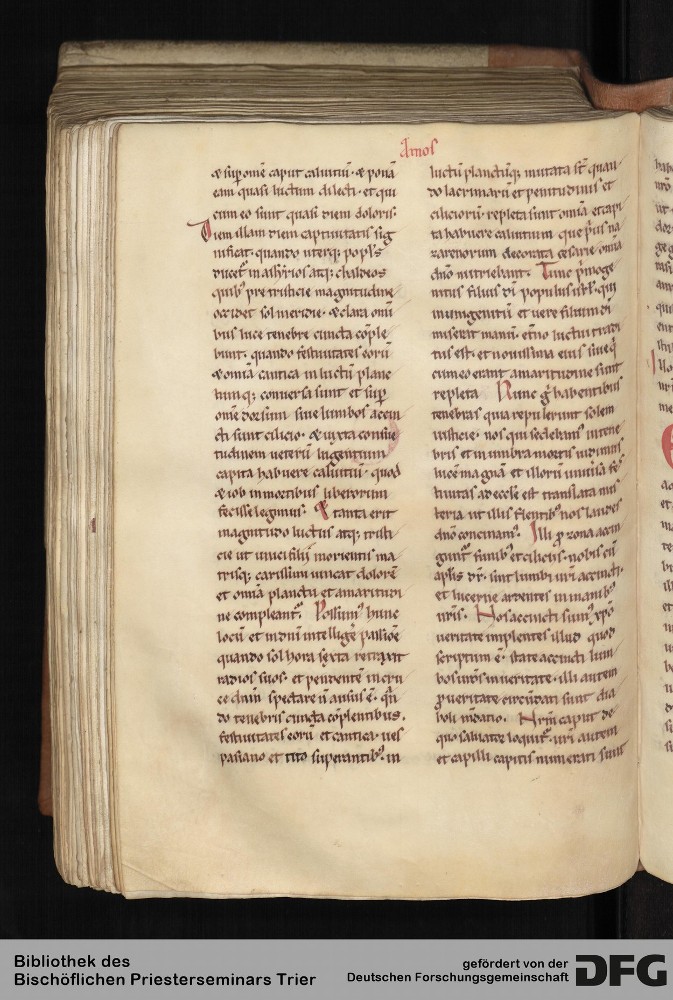 Amos
& sup̱ om̄e caput caluitiū · & ponā
eam quasi luctum dilecti · et qui
cum eo sunt quasi diem doloris ·
Diem illam diem captiuitatis sig
nificat · quando uterq; popl̄s
ducet̉ in assyrios atq; chaldeos
quib; pre tristicie magnitudine
occidet sol meridie · & clara omī
bus luce tenebre cuncta cōple
bunt · quando festiuitates eorū
& omīa cantica in luctū planc
tumq; conuersa sunt et sup̱
om̄e dorsum siue lumbos accin
cti sunt cilicio · & iuxta consue
tudinem ueterū lugentium
capita habuere caluitiū · quod
& iob in mortibus liberorum
fecisse legimus · & tanta erit
magnitudo luctus atq; tristi
cie ut unici filii morientis ma
trisq; carissimi uincat dolorē
et omīa planctu et amaritudi
ne compleant̉ · Possum; hunc
locū et in dn̄i intelligere passiōe
quando sol hora sexta retraxit
radios suos · et pendentē in cru
ce dn̄m spectare n̄ ausus ē · qn̄
do tenebris cuncta cōplentibus ·
festiuitates eorū et cantica · ues
pasiano et tito superantib; · in
luctū planctūq; mutata st̄ · quan
do lacrimarū et penitudinis et
ciliciorū · repleta sunt omīa et capi
ta habuere caluitium que pīus na
zarenorum decorata cesarie omīa
dn̄o nutriebant · Tunc p̄moge
nitus filius dī populus isrl̄ · qui
unigenitū et uere filium dī
miserat manū · et̄no luctui tradi
tus est · et nouissima eius siue q̄
cum eo erant amaritudine sunt
repleta Nunc g̊ habentibus
tenebras quia repulerunt solem
iusticie · nos qui sedebam; in tene
bris et in umbra mortis uidim;
lucē magnā et illorū uniūsa fes
tiuitas ad eccl̄e est translata mis
teria ut illis flentib; nos laudes
dn̄o concinam; · Illi p̱ zona accin
gunt̉ funib; et ciliciis · nobis cū
apl̄is dr̄ · sint lumbi ur̄i accincti ·
et lucerne ardentes in manib;
ur̄is · Nos accincti sum; xp̄o
ueritate implentes illud quod
scriptum ē · state accincti lum
bos ur̄os in ueritate · illi autem
p̱ ueritate circūdati sunt dia
boli mendatio · Nr̄m caput de
quo saluator loquit̉ · ur̄i autem
et capilli capitis numerati sunt
Bibliothek des
Bischöflichen Priesterseminars Trier
gefördert von der
Deutschen Forschungsgemeinschaft
DFG